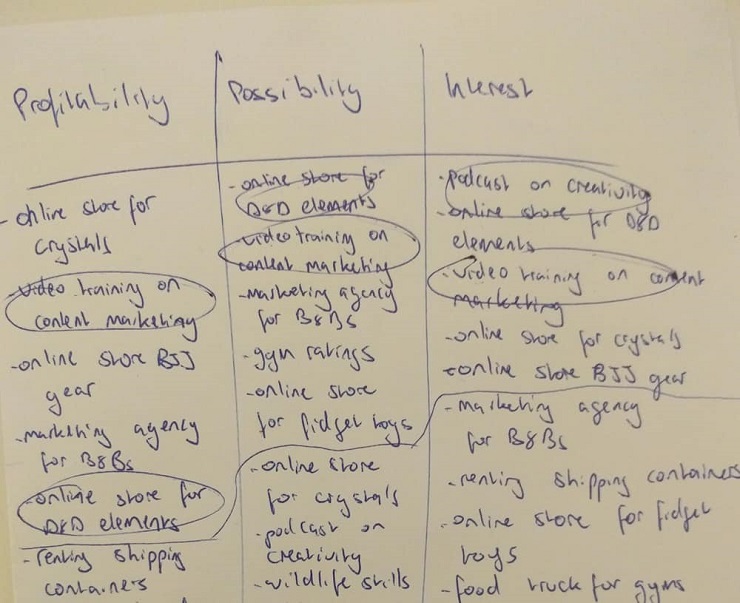 Profitability
- online store for
crystals
- video training on
content marketing
- online store BJJ
gear
- marketing agency
for B&Bs
- online store for
D&D elements
- renting shipping
containers
Possibility
- online store for
D&D elements
- video training on
content marketing
- marketing agency
for B&Bs
- gym ratings
- online store
for fidget toys
- online store
for crystals
- podcast on
creativity
- wildlife stills
Interest
- podcast on creativity
- online store for D&D
elements
- video training on content
marketing
- online store for crystals
- online store BJJ gear
- marketing agency
for B&Bs
- renting shipping containers
- online store for fidget
toys
- food truck for gyms